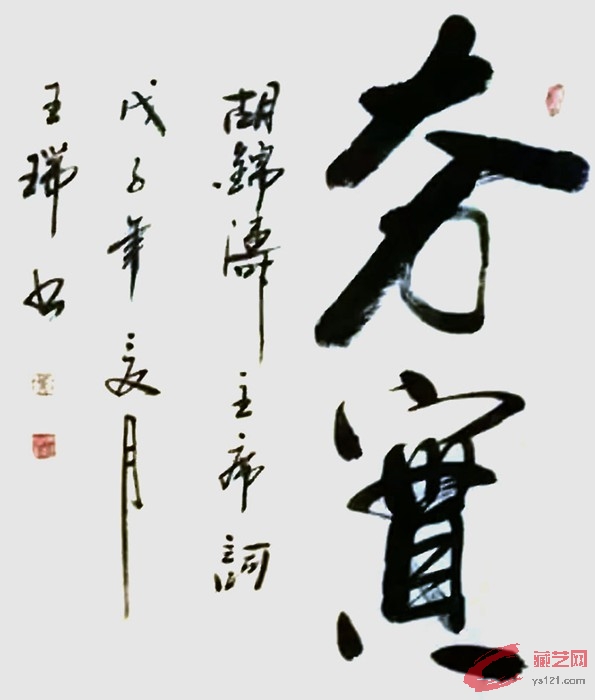 夯實
胡錦濤主席詞
戊子年夏月
王瑞书
藏艺网
ys121.com